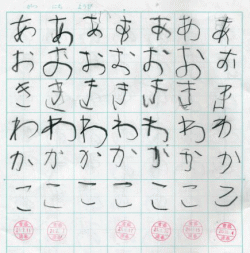 あ あ あ あ あ あ あ
お お お お お お お
き き き き き き き
わ わ わ わ わ わ わ
か か か か か か か
こ こ こ こ こ こ こ